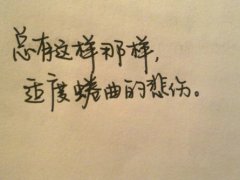 总有这样那样，
适度蜷曲的悲伤。